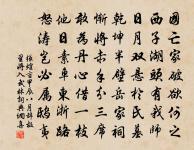 國亡家破欲何之
西子湖頭有我師
日月雙懸于氏墓
乾坤半壁岳家祠
慚將赤手分三席
敢為丹心借一枝
他日素車東浙路
怒濤豈必屬鴟夷
張煌言甲辰八月辭故
里將入武林詞典網